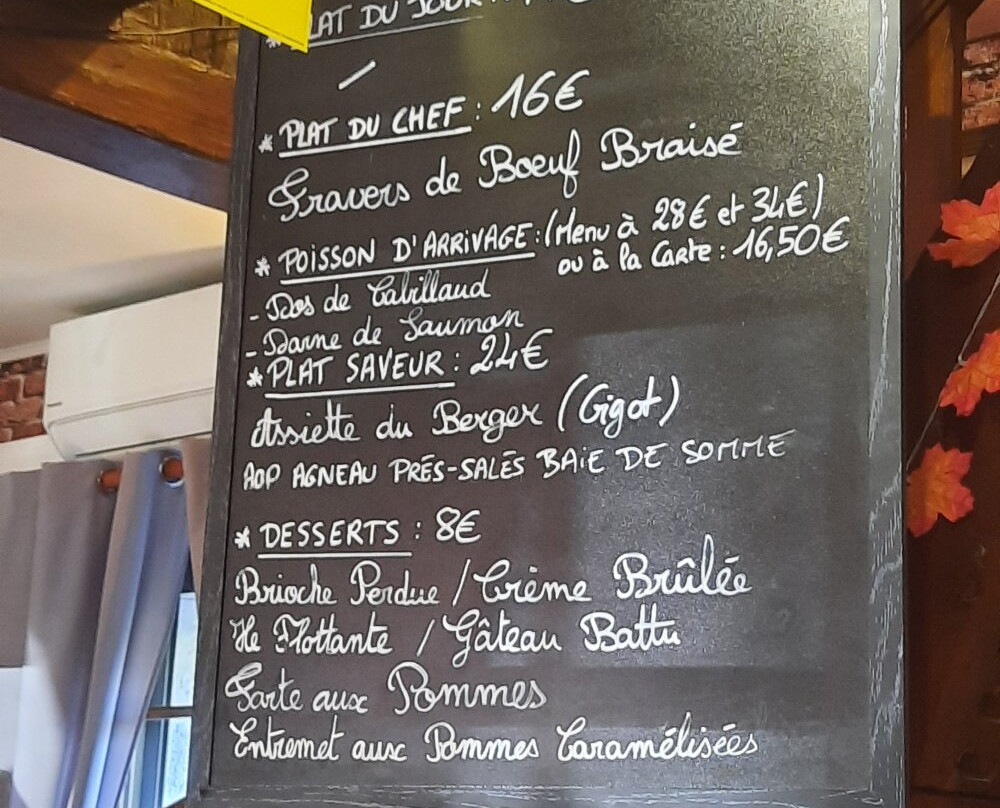 PLAT DU JOUR
* PLAT DU CHEF : 16€
Travers de Boeuf Braisé
* POISSON D'ARRIVAGE : (Menu à 28€ et 34€)
ou à la Carte : 16,50€
- Dos de Cabillaud
- Darne de Saumon
* PLAT SAVEUR : 24€
Assiette du Berger (Gigot)
AOP AGNEAU PRÉS-SALÉS BAIE DE SOMME
* DESSERTS : 8€
Brioche Perdue / Crème Brûlée
Ile Flottante / Gâteau Battu
Tarte aux Pommes
Entremet aux Pommes Caramélisées